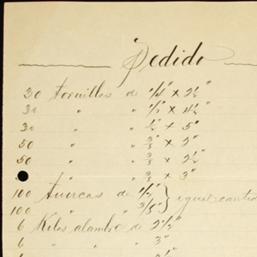 Pedido
30 Tornillos de 1/4" x 2 1/2"
30 " " 1/2 x 4 1/2"
30 " " 1/2 x 5"
50 " " 3/8 x 2"
50 " " 3/8 x 2 1/2"
" " 3/8 x 3"
100 Tuercas de 1/2"
100 " " 3/8"
6 Kilos alambre de 2 1/2"
6 " " " 3"